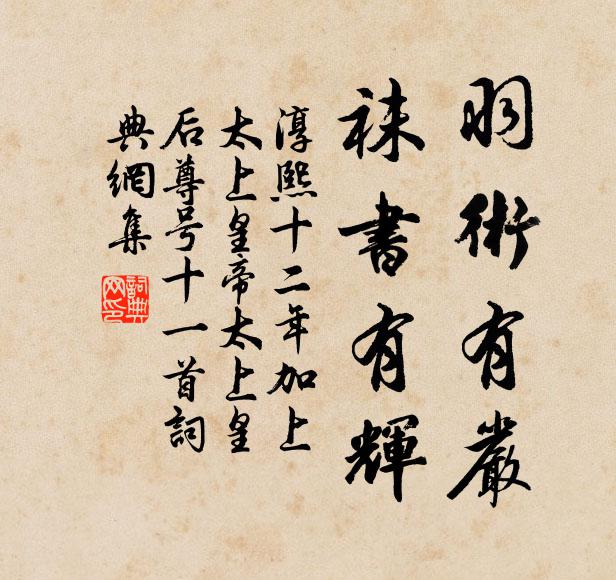 羽術有嚴
袜書有輝
淳熙十二年加上
太上皇帝太上皇
后尊号十一首詞
典網集
詞典網印